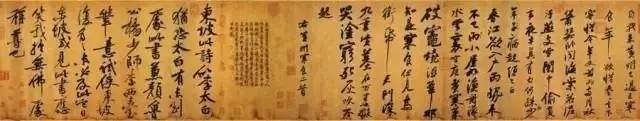 自我來黃州已過三寒
食年年欲惜春春去不
容惜今年又苦雨兩月秋
蕭瑟臥聞海棠花泥
汙燕支雪闇中偷負
去夜半真有力何殊病少
年病起頭已白
春江欲入戶雨勢來
不已小屋如漁舟濛濛
水雲裏空庖煑寒菜
破竈燒濕葦那
知是寒食但見烏
銜帋君門深
九重墳墓在萬里也擬
哭塗窮死灰吹不
起
右黃州寒食二首
東坡此詩似李太白
猶恐太白有未到
處此書兼顏魯
公楊少師李西臺
筆意試使東坡
復為之未必及此它日
東坡或見此書應
笑我於無佛處
稱尊也